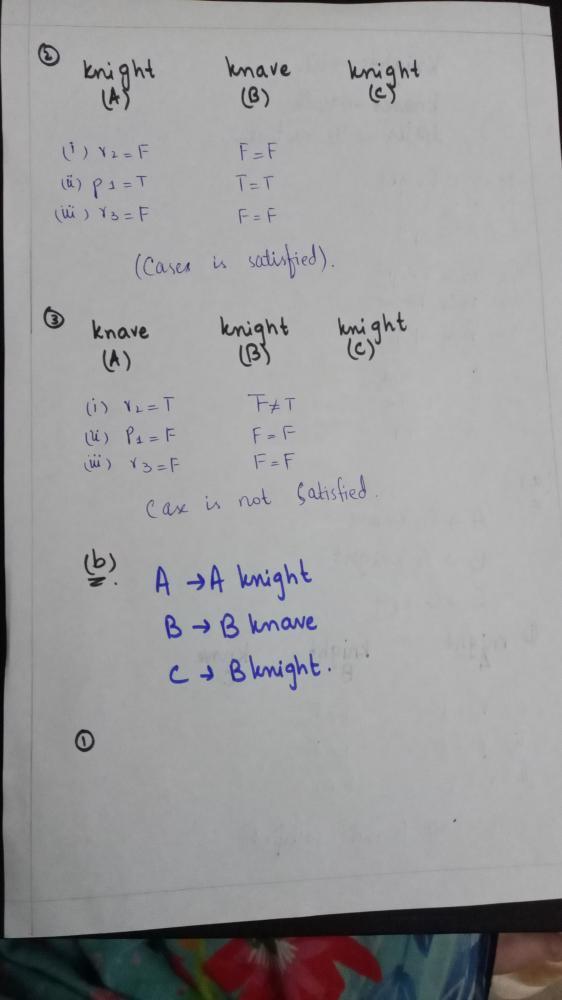 ②
knight knave knight
(A) (B) (C)
(i) r2 = F F = F
(ii) P1 = T T = T
(iii) r3 = F F = F
(Cases is satisfied).
③
knave knight knight
(A) (B) (C)
(i) r2 = T F ≠ T
(ii) P1 = F F = F
(iii) r3 = F F = F
Case is not Satisfied.
(b).
A → A knight
B → B knave
C → B knight.
①